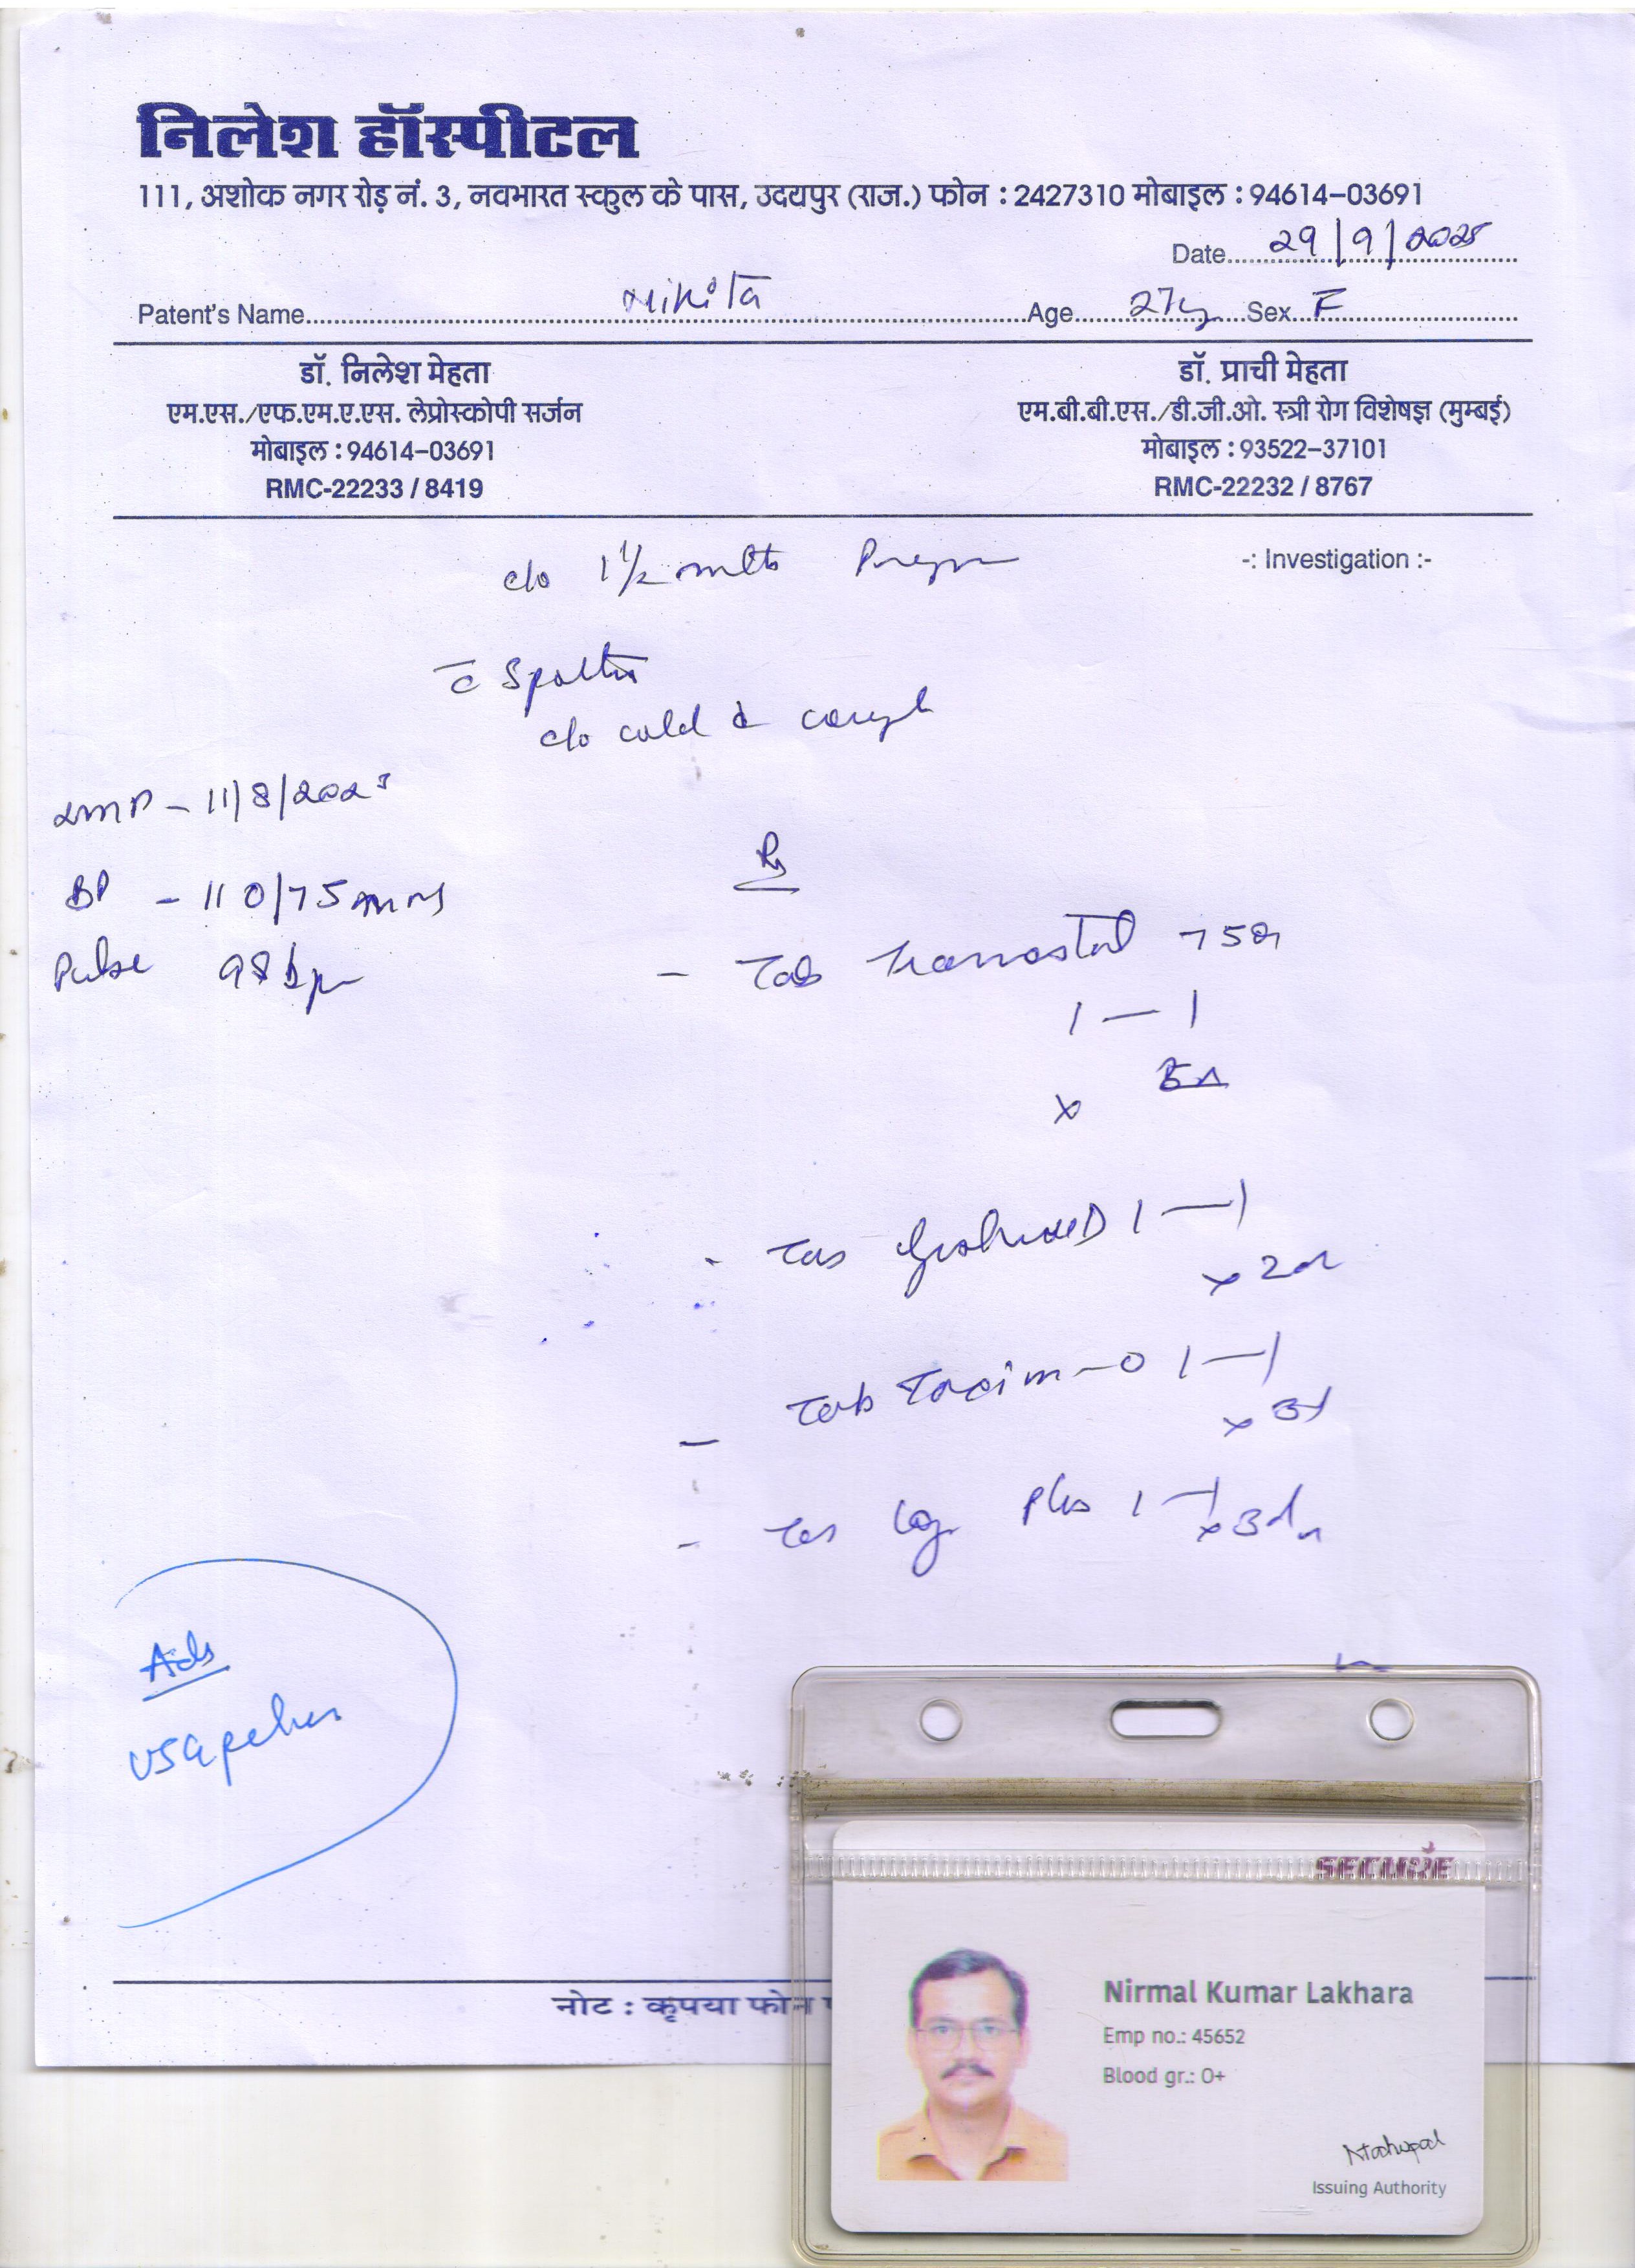 निलेश हॉस्पीटल
111, अशोक नगर रोड़ नं. 3, नवभारत स्कुल के पास, उदयपुर (राज.) फोन : 2427310 मोबाइल : 94614-03691
Date 29/9/2025
Patent's Name Nikita Age 27y Sex F
डॉ. निलेश मेहता
एम.एस./एफ.एम.ए.एस. लेप्रोस्कोपी सर्जन
मोबाइल : 94614-03691
RMC-22233 / 8419
डॉ. प्राची मेहता
एम.बी.बी.एस./डी.जी.ओ. स्त्री रोग विशेषज्ञ (मुम्बई)
मोबाइल : 93522-37101
RMC-22232 / 8767
-: Investigation :-
c/o 1½ mth
c̄ Spotting
c/o cold & cough
LMP - 11/8/2025
BP - 110/75
Pulse 98 bpm
Rx
- Tab
1 — 1
x
- Tab 1 — 1
x 2
- Tab Taxim-O 1 — 1
x
- Tab Plus 1 — 1
x 3d
Adv
USG pelvis
नोट : कृपया फोन
SECURE
Nirmal Kumar Lakhara
Emp no.: 45652
Blood gr.: O+
Issuing Authority